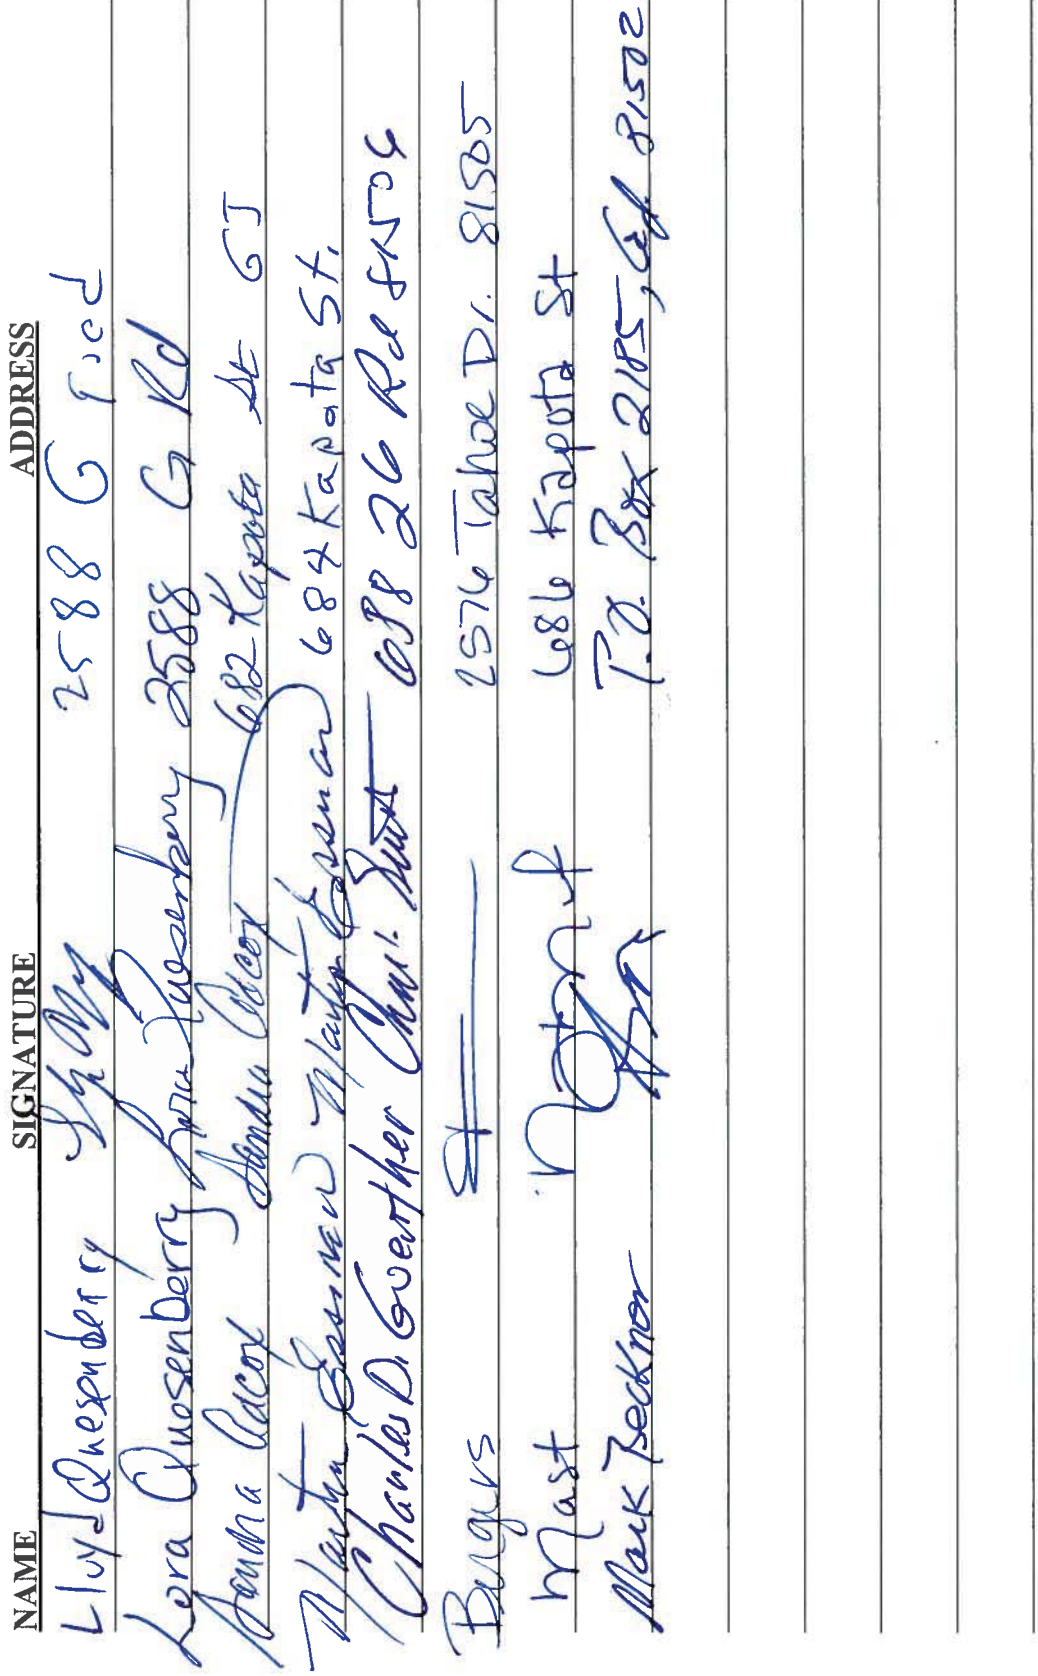 NAME SIGNATURE ADDRESS
Lloyd Quesenberry 2588 G road
Lora Quesenberry Lora Quesenberry 2588 G Rd
Sandra Adcox Sandra Adcox 682 Kapota St GJ
Martin Essman Martin Essman 684 Kapota St.
Charles D. Guerther 688 26 Rd 81506
Burgers 2576 Tahoe Dr. 81505
Mast 686 Kapota St
Mark Becknor P.O. Box 2185, 81502